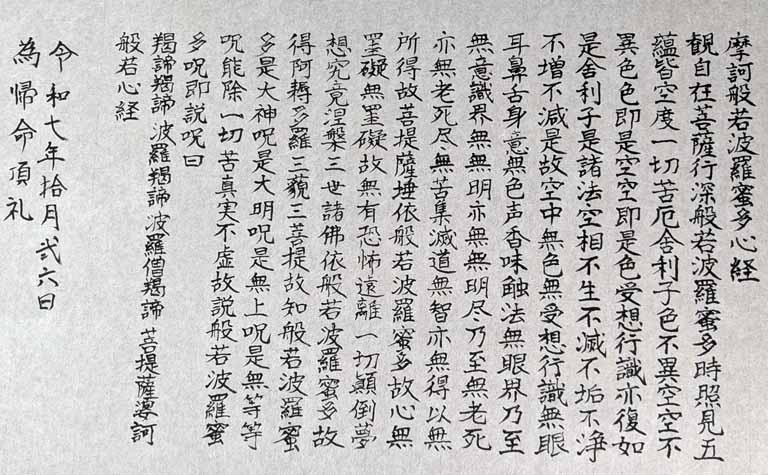 摩訶般若波羅蜜多心経
観自在菩薩行深般若波羅蜜多時照見五
蘊皆空度一切苦厄舎利子色不異空空不
異色色即是空空即是色受想行識亦復如
是舎利子是諸法空相不生不滅不垢不浄
不増不減是故空中無色無受想行識無眼
耳鼻舌身意無色声香味触法無眼界乃至
無意識界無無明亦無無明尽乃至無老死
亦無老死尽無苦集滅道無智亦無得以無
所得故菩提薩埵依般若波羅蜜多故心無
罣礙無罣礙故無有恐怖遠離一切顛倒夢
想究竟涅槃三世諸佛依般若波羅蜜多故
得阿耨多羅三藐三菩提故知般若波羅蜜
多是大神呪是大明呪是無上呪是無等等
呪能除一切苦真実不虚故説般若波羅蜜
多呪即説呪曰
羯諦羯諦波羅羯諦波羅僧羯諦 菩提薩婆訶
般若心経
令和七年拾月弐六日
為帰命頂礼